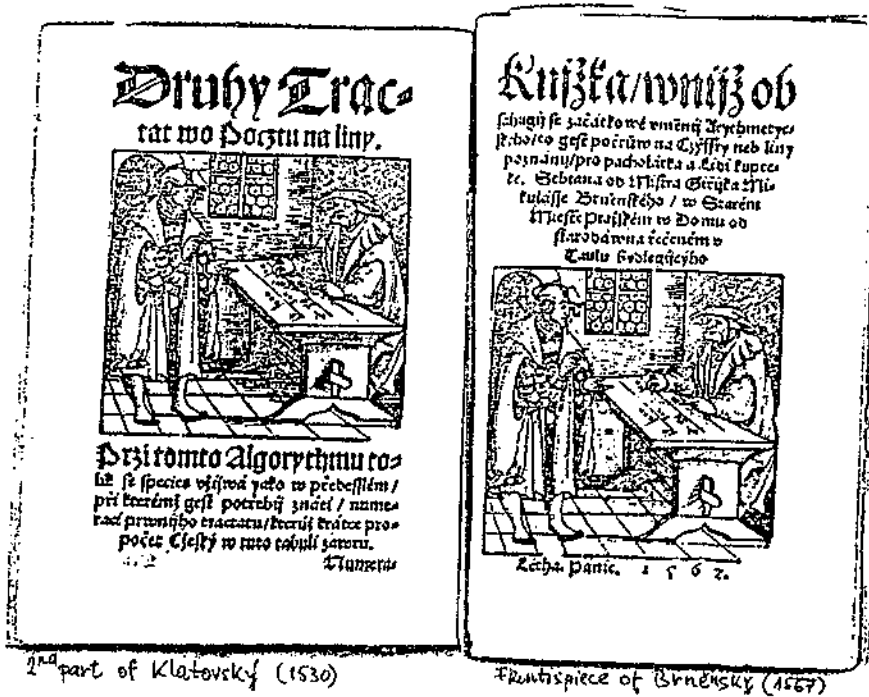 Druhy Trac=
tat wo Pocztu na liny.
Przi tomto Algorythmu to=
lik se species vžjwá yako w přebesslém /
při kterémž gest potřebij znáti / nume=
racý prwnijho tractatu / kteruž krátce pro=
počet Cžeský w tuto tabuli zawru.
Numera=
2nd part of Klatovský (1530)
Knijžka / wnijž ob
sahugij se začátkowé vměnij Arythmetyc=
kého / to gest počtůw na Cyffry neb liny
poznánij / pro pacholátka a Lidi kupec=
ké. Sebrana od Mistra Giřijka Mi=
kulásse Brněnského / w Starém
Miestě Pražském w Domu od
starodáwna řečeném v
Taulu
Létha Panie. 1 5 6 7.
Frontispiece of Brněnský (1567)